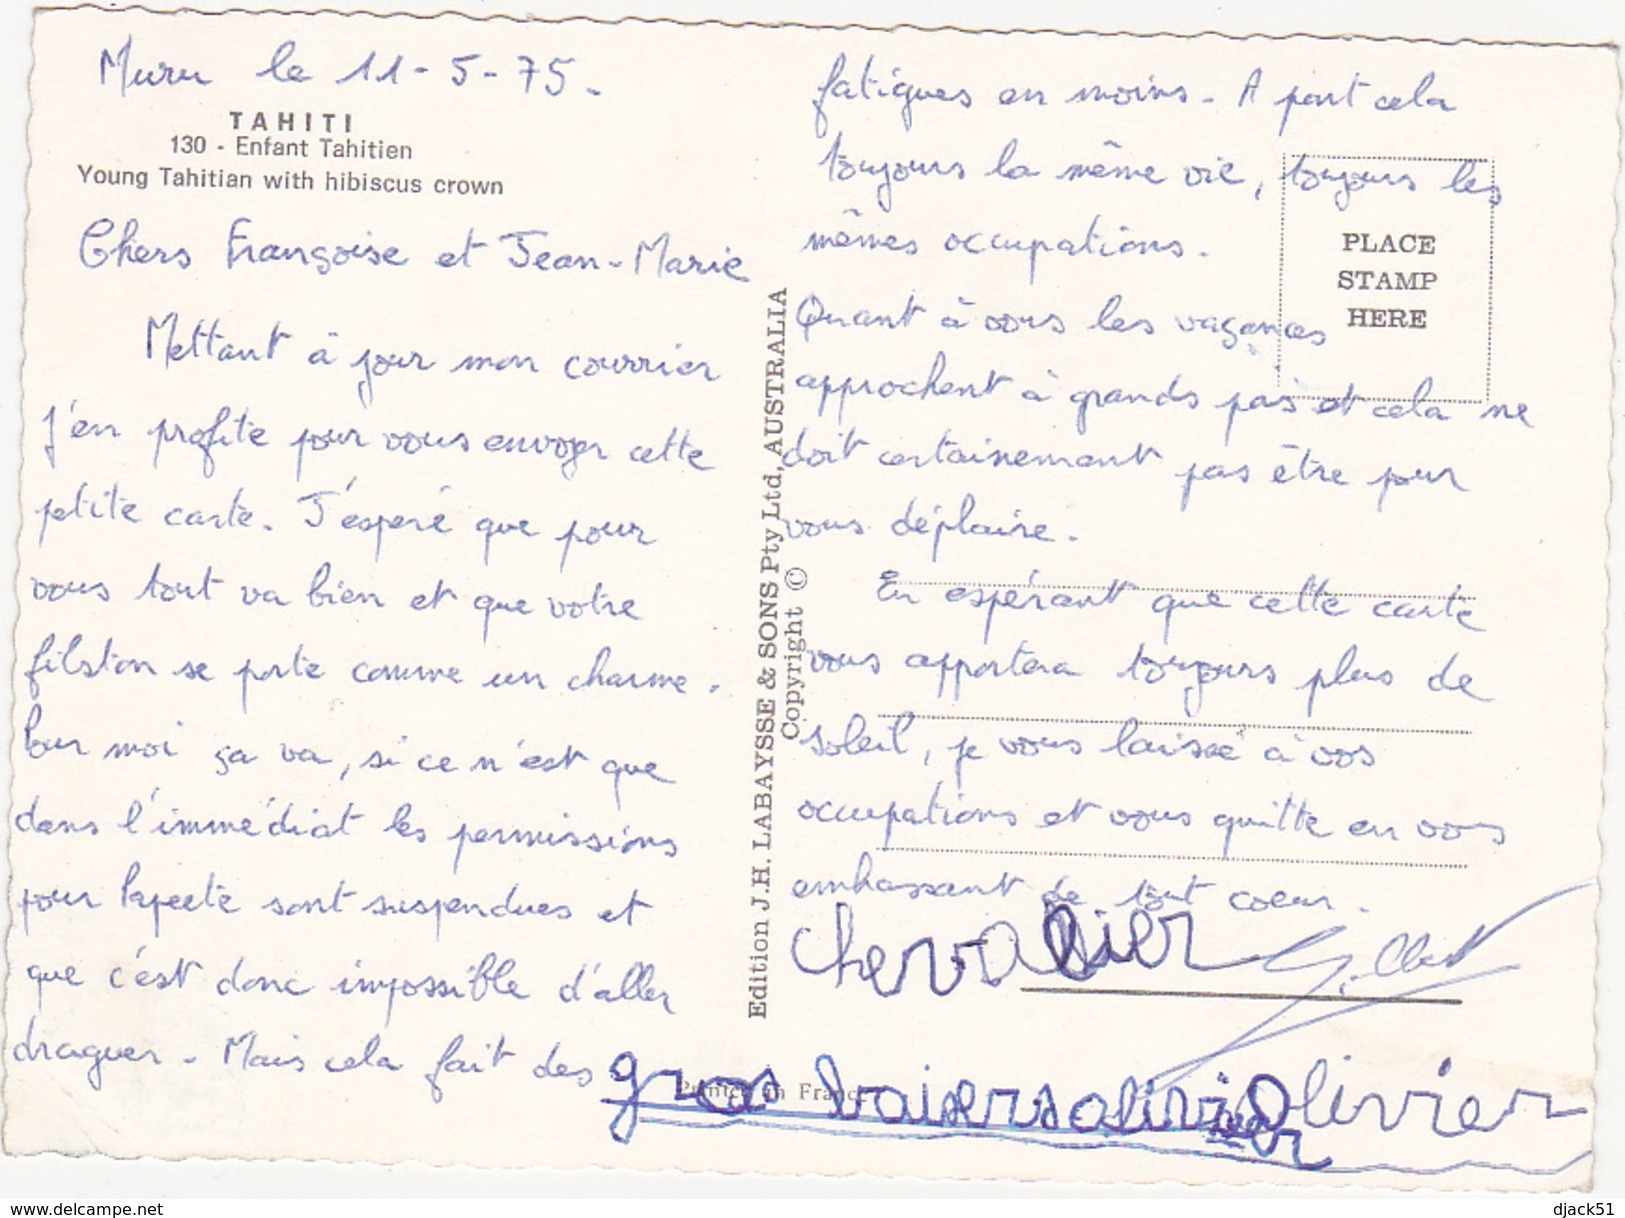 Muru le 11-5-75.
TAHITI
130 - Enfant Tahitien
Young Tahitian with hibiscus crown
Chers Françoise et Jean-Marie
Mettant à jour mon courrier
j'en profite pour vous envoyer cette
petite carte. J'espère que pour
vous tout va bien et que votre
filston se porte comme un charme.
Pour moi ça va, si ce n'est que
dans l'immédiat les permissions
pour Papeete sont suspendues et
que c'est donc impossible d'aller
draguer. Mais cela fait des
fatigues en moins. A part cela
toujours la même vie, toujours les
mêmes occupations.
Quant à vous les vaçances
approchent à grands pas et cela ne
doit certainement pas être pour
vous déplaire.
En espérant que cette carte
vous apportera toujours plus de
soleil, je vous laisse à vos
occupations et vous quitte en vous
embassant de tout coeur.
chevalier Gilbert
gros baisers olivier Olivier
PLACE
STAMP
HERE
Edition J.H. LABAYSSE & SONS Pty Ltd, AUSTRALIA
Copyright ©
Printed in France
www.delcampe.net
djack51